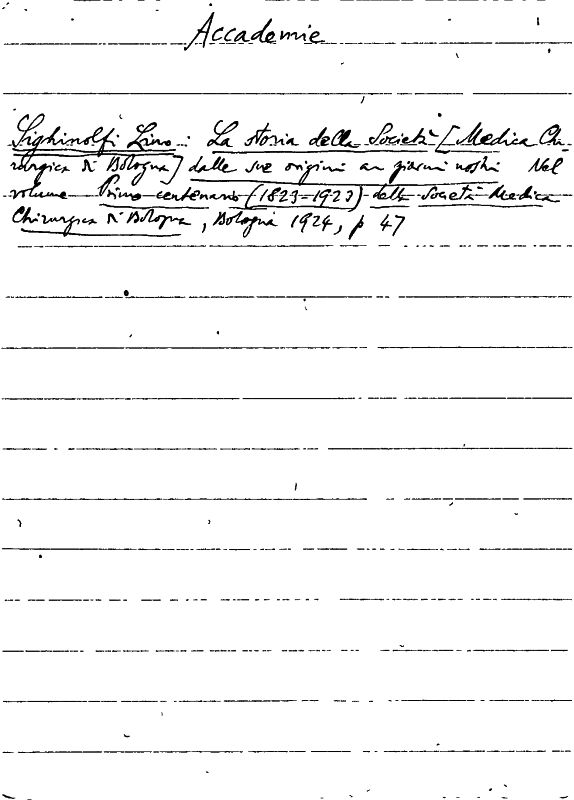 Accademie
Sighinolfi Lino: La storia della Società [Medica Chi-
rurgica di Bologna] dalle sue origini ai giorni nostri Nel
volume Primo centenario (1823-1923) della Società Medica
Chirurgica di Bologna, Bologna 1924, p 47